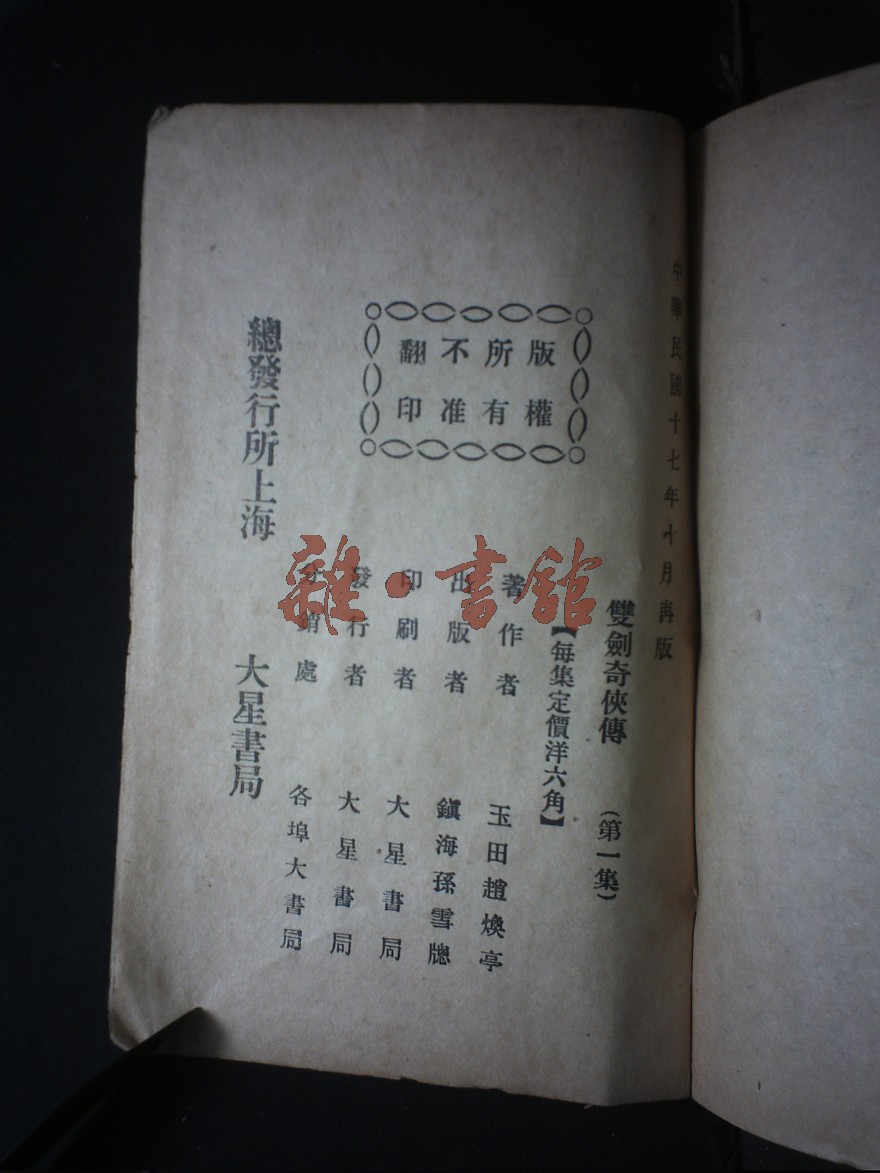 中華民國十七年十月再版
雙劍奇俠傳 (第一集)
【每集定價洋六角】
版權所有不准翻印
著作者 玉田趙煥亭
出版者 鎭海孫雪牕
印刷者 大星書局
發行者 大星書局
分銷處 各埠大書局
總發行所上海 大星書局
雜·書館